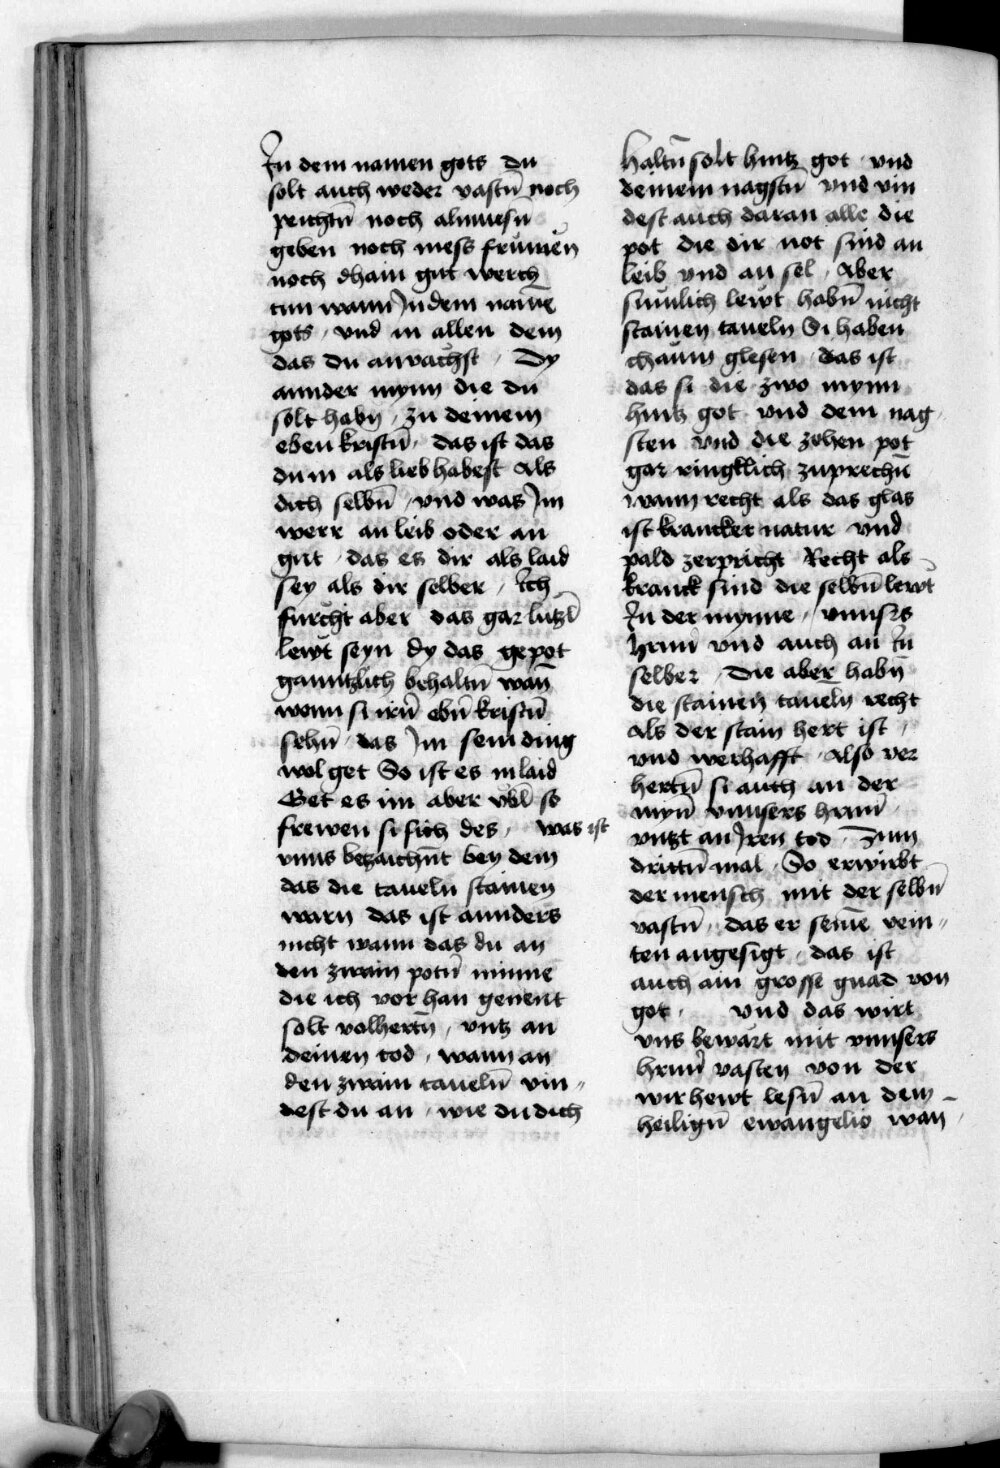 In dem namen gots du
solt auch weder vastn̄ noch
peichtn̄ noch almuesn̄
geben noch mess frumen
noch dhain gut werch
tun wann Jn dem namē
gots / vnd in allen dem
das du anvächst / Dy
annder mynn die du
solt habn̄ / zu deinem
eben kristn̄ / das ist das
du in als lieb habest Als
dich selbn̄ / vnd was Jm
werr an leib oder an
gut / das es dir als laid
sey als dir selber / Ich
fürcht aber das gar lützl̄
lewt seyn dy das gepot
ganntzlich behaltn̄ wan̄
wenn si irn̄ ebn̄ kristn̄
sehn̄ / das Jm sein ding
wol get So ist es in laid
Get es im aber vbl̄ so
frewen si sich des / was ist
vnns bezaichnt̄ bey dem
das die taueln stainen
warn das ist annders
nicht wann das du an
den zwain potn̄ minne
die ich vor han genent
solt volhertn̄ / vntz an
deinen tod / wann an
den zwain taueln̄ vin=
dest du an / wie du dich
haltn̄ solt hintz got / vnd
deinem nagstn̄ vnd vin
dest auch daran alle die
pot die dir not sind an
leib vnd an sel / Aber
sümlich lewt habn̄ nicht
stainen taueln Si haben
chaum glesen / das ist
das si die zwo mynn
hintz got / vnd dem nag=
sten vnd die zehen pot
gar ringklich zuprechn̄
wann recht als das glas
ist krancker natur vnd
pald zerpricht Recht als
kranck sind die selbn̄ lewt
In der mynne / vnnsrs
hrnn̄ vnd auch an In
selber / Die aber habn̄
die stainen taueln recht
als der stain hert ist /
vnd werhafft / Also ver
hertn̄ si auch an der
myn̄ vnnsers hrnn̄
vntzt an Jren tod / Zum
drittn̄ mal / So erwirbt
der mensch mit der selbn̄
vastn̄ / das er seinē vein=
ten angesigt / das ist
auch ain grosse gnad von
got / vnd das wirt
vns bewart mit vnnsers
hrnn̄ vasten von der
wir hewt lesn̄ an dem
heilign̄ ewangelio wan̄